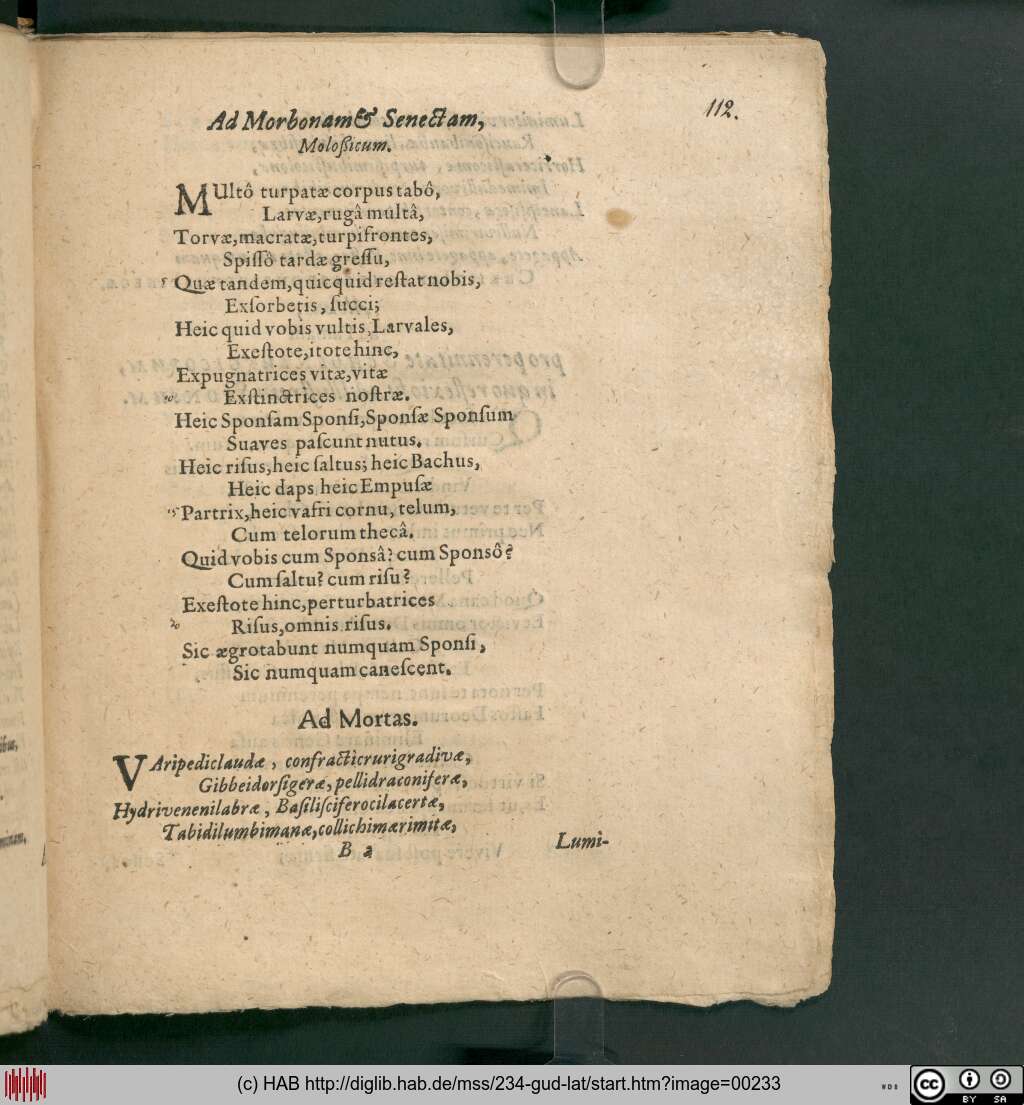 112.
Ad Morbonam & Senectam,
Moloßicum.
MUltô turpatæ corpus tabô,
Larvæ, rugâ multâ,
Torvæ, macratæ, turpifrontes,
Spissò tardæ gressu,
5 Quæ tandem, quicquid restat nobis,
Exsorbetis, succi;
Heic quid vobis vultis, Larvales,
Exestote, itote hinc,
Expugnatrices vitæ, vitæ
10 Exstinctrices nostræ.
Heic Sponsam Sponsi, Sponsæ Sponsum
Suaves pascunt nutus.
Heic risus, heic saltus; heic Bachus,
Heic daps heic Empusæ
15 Partrix, heic vafri cornu, telum,
Cum telorum thecâ.
Quid vobis cum Sponsâ? cum Sponsô?
Cum saltu? cum risu?
Exestote hinc, perturbatrices
20 Risus, omnis risus.
Sic ægrotabunt numquam Sponsi,
Sic numquam canescent.
Ad Mortas.
VAripediclaudæ, confracticrurigradivæ,
Gibbeidorsigeræ, pellidraconiferæ,
Hydrivenenilabræ, Basilisciferocilacertæ,
Tabidilumbimanæ, collichimærimitæ,
B 2
Lumi-
(c) HAB http://diglib.hab.de/mss/234-gud-lat/start.htm?image=00233
WDB
cc BY SA